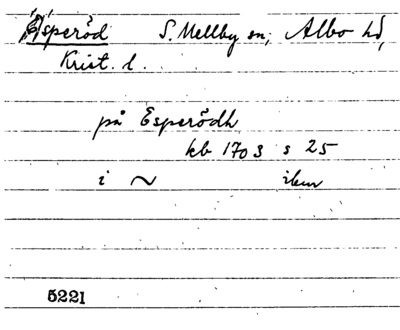 Esperöd S. Mellby sn, Albo hd,
Krist. l.
på Esperödh
kb 1703 s 25
i ~ ibm
5221